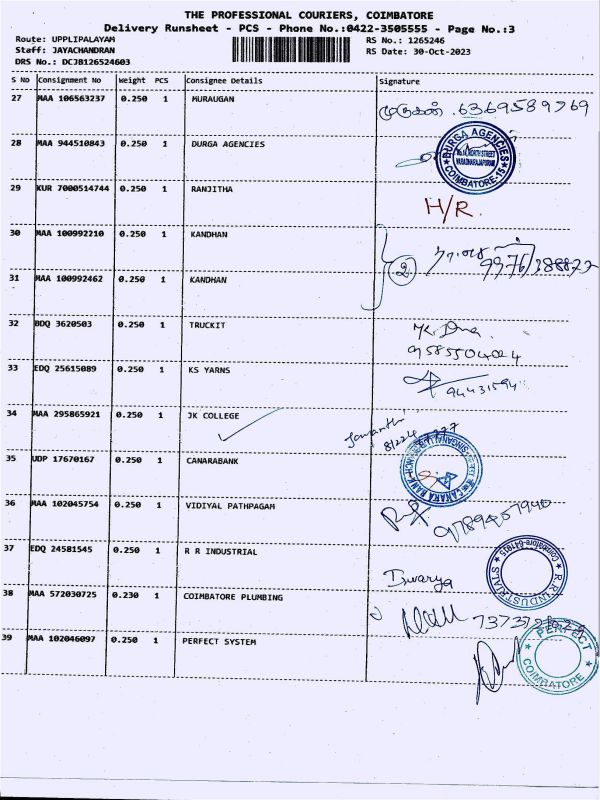 THE PROFESSIONAL COURIERS, COIMBATORE
Delivery Runsheet - PCS - Phone No.:0422-3505555 - Page No.:3
Route: UPPLIPALAYAM RS No.: 1265246
Staff: JAYACHANDRAN RS Date: 30-Oct-2023
DRS No.: DCJB126524603
S No Consignment No Weight PCS Consignee Details Signature
27 MAA 106563237 0.250 1 MURAUGAN முருகன். 6369589769
28 MAA 944510843 0.250 1 DURGA AGENCIES
DURGA AGENCIES
VARADHARAJAPURAM
COIMBATORE-15
29 KUR 7000514744 0.250 1 RANJITHA
H/R.
30 MAA 100992210 0.250 1 KANDHAN
2
31 MAA 100992462 0.250 1 KANDHAN
32 BDQ 3620503 0.250 1 TRUCKIT
9585504024
33 EDQ 25615089 0.250 1 KS YARNS
94431594
34 MAA 295865921 0.250 1 JK COLLEGE
35 UDP 17670167 0.250 1 CANARABANK
CANARA BANK
36 MAA 102045754 0.250 1 VIDIYAL PATHPAGAM
37 EDQ 24581545 0.250 1 R R INDUSTRIAL
R.R INDUSTRIALS
Coimbatore-641015
Iswarya
38 MAA 572030725 0.230 1 COIMBATORE PLUMBING
39 MAA 102046097 0.250 1 PERFECT SYSTEM
PERFECT
COIMBATORE